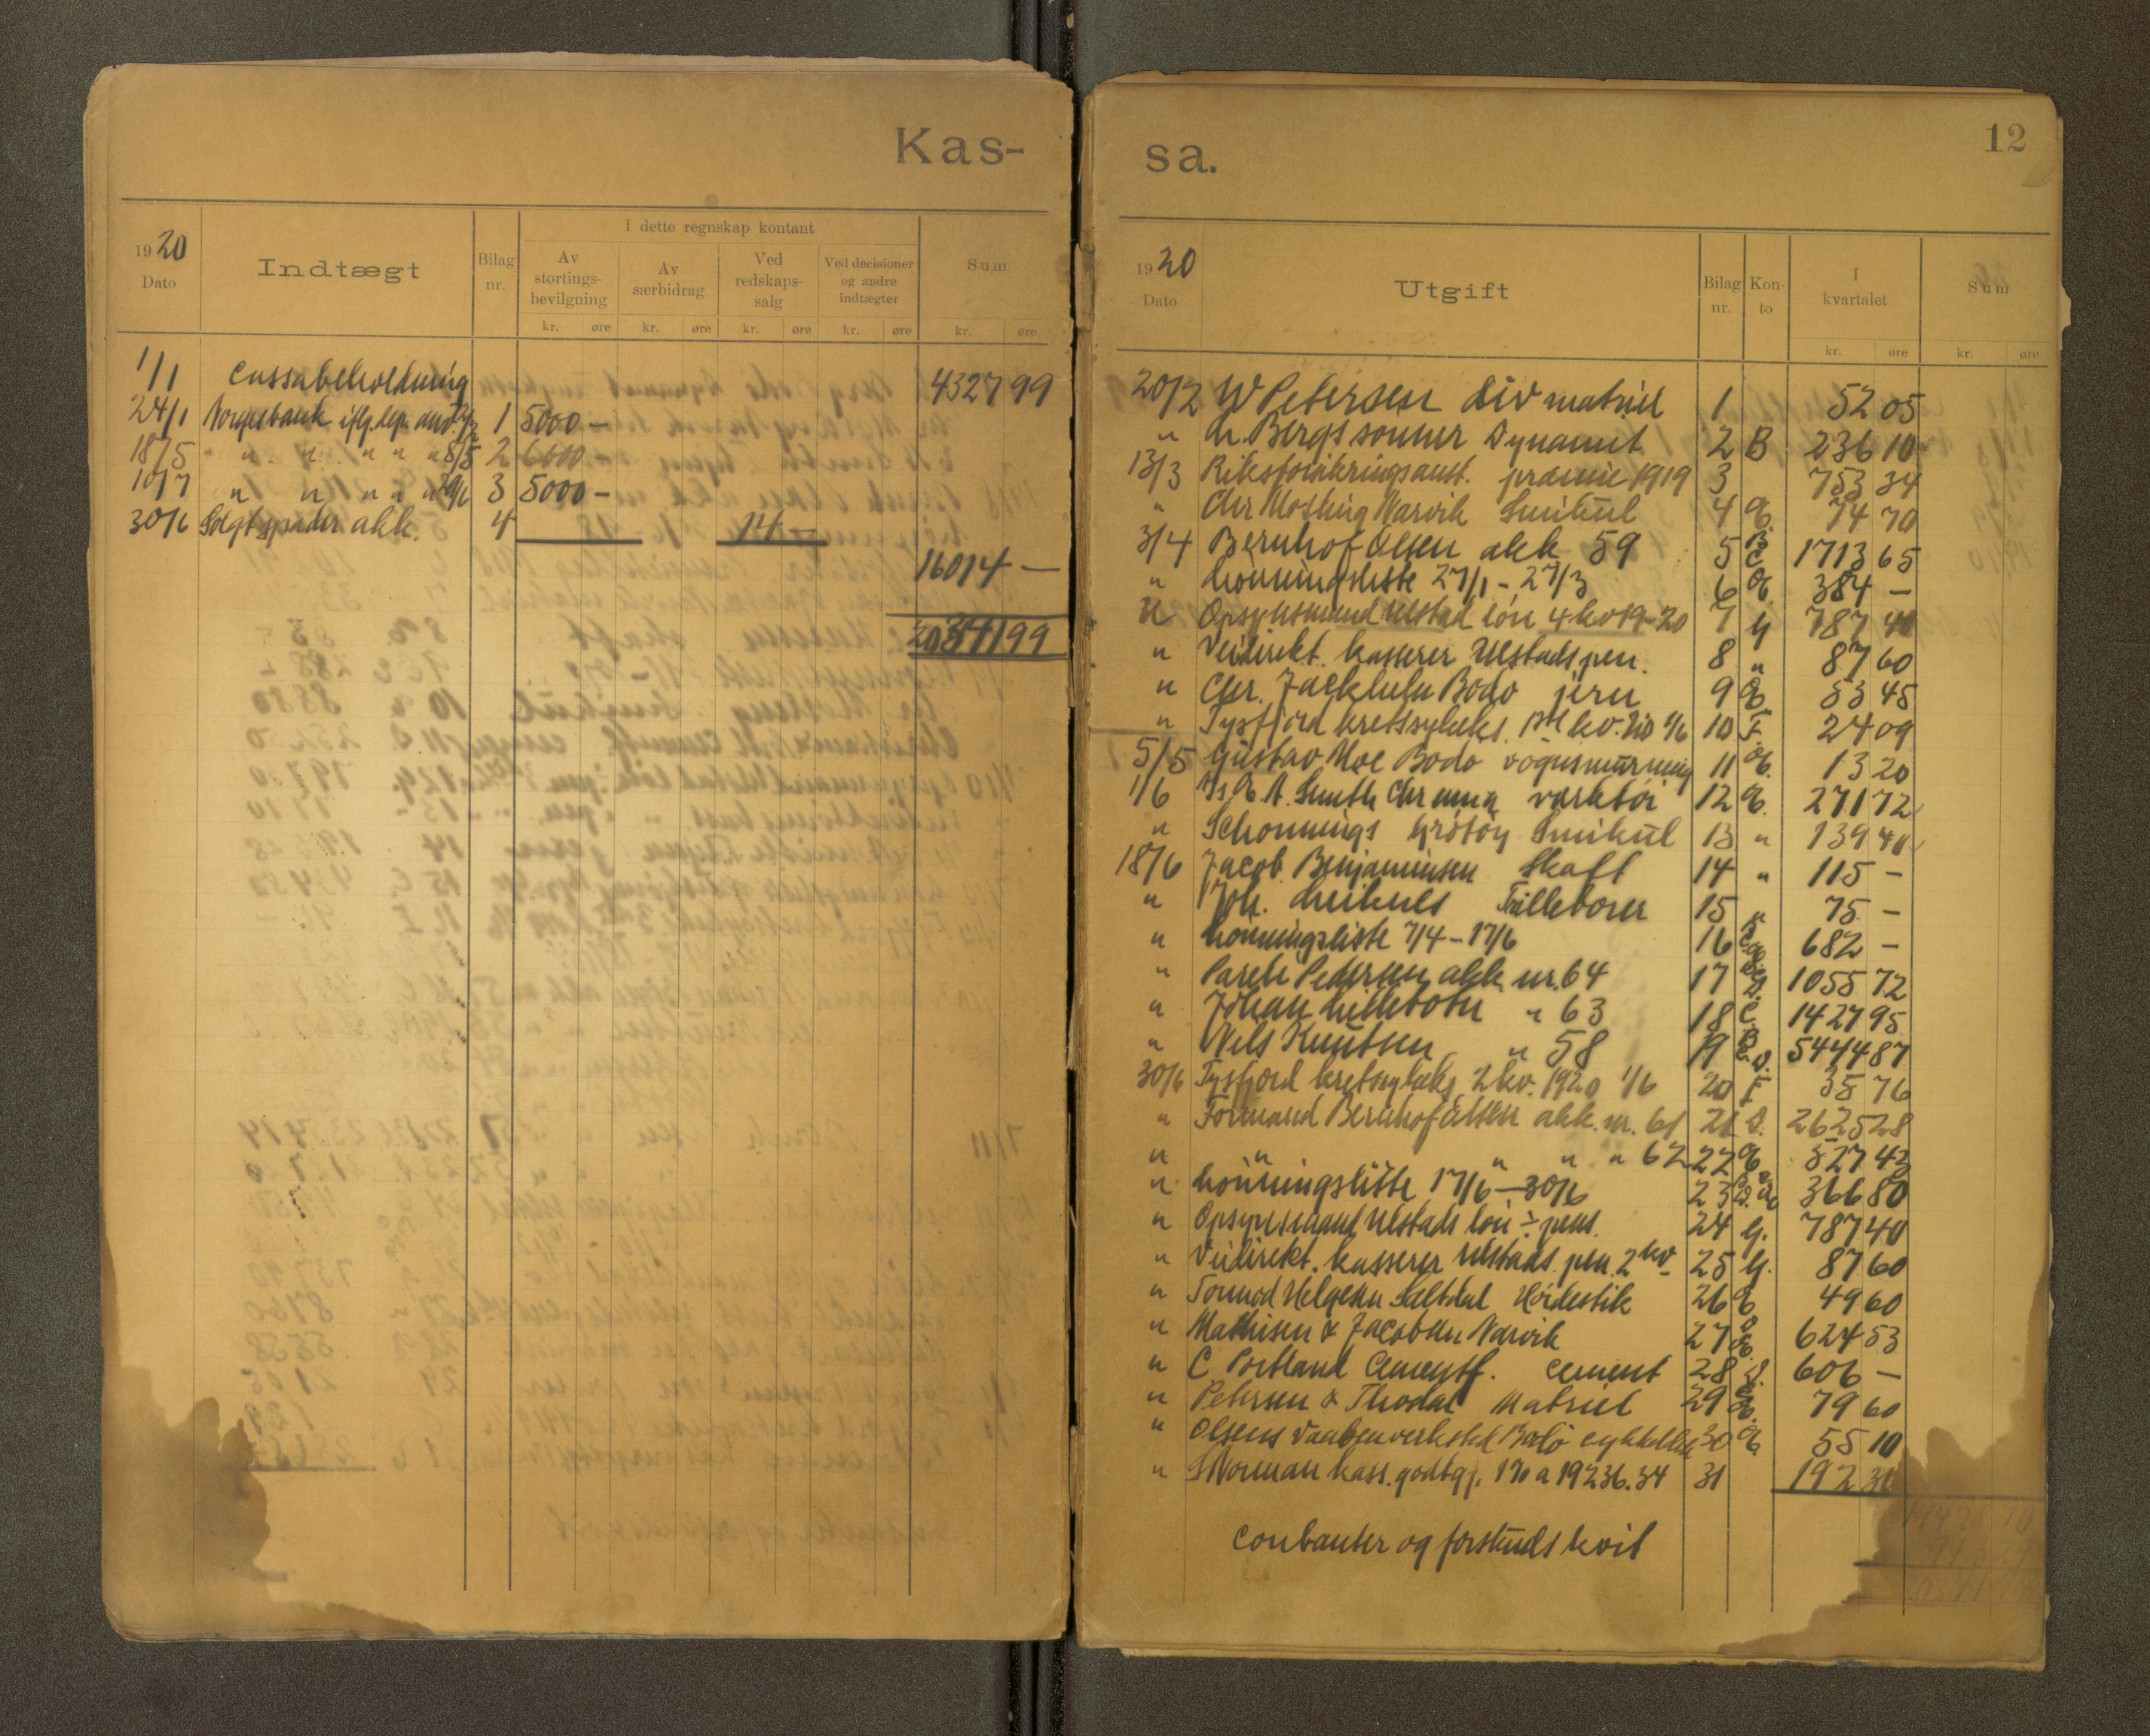 Kas-
1920 Dato Indtægt Bilag nr. I dette regnskap kontant Sum
Av stortings-bevilgning Av særbidrag Ved redskaps-salg Ved decisioner og andre indtægter
kr. øre kr. øre kr. øre kr. øre kr. øre
1/1 Cassabeholdning 4327 99
24/1 Norgesbank iflg. 1 5000 -
18/5 " " " " 8/5 2 6000 -
10/7 " " " " 3 5000 -
30/6 Solgt spader akk. 4 14 -
16014 -
20341 99
sa.
12
1920 Dato Utgift Bilag nr. Kon-to I kvartalet Sum
kr. øre kr. øre
20/2 W Petersen div matriel 1 52 05
" L. Bergs sønner Dynamit 2 B 236 10
13/3 Riksforsikringsanst. præmie 1919 3 753 34
" Chr Mosling Narvik Smikul 4 74 70
3/4 Bernhof Olsen akk 59 5 B C 1713 65
" Lønningsliste 27/1 - 27/3 6 384 -
" Opsynsmand Ulstad løn 4 kv 19-20 7 G 787 40
" Veidirekt. kasserer Ulstads pen. 8 " 87 60
" Chr. Bodø jern 9 53 45
" Tysfjord kretssykeks. kv. 1/6 10 F. 24 09
5/5 Gustav Moe Bodø vognsmurning 11 13 20
1/6 A. Smith Chr ania verktøi 12 271 72
" Schønnings Grøtøy Smikul 13 " 139 40
18/6 Jacob Benjaminsen Skaft 14 " 115 -
" Joh. Trillebører 15 " 75 -
" Lønningsliste 7/4 - 17/6 16 682 -
" Pareli Pedersen akk nr. 64 17 1055 72
" Johan Lillebotn " 63 18 C. 1427 95
" Nils Knutsen " 58 19 5444 87
30/6 Tysfjord kretssykeks 2 kv. 1920 1/6 20 F 35 76
" Formand Bernhof Olsen akk. nr. 61 21 D. 2625 28
" " " " " 62 22 527 43
" Lønningsliste 17/6 - 30/6 23 366 80
" Opsynsmand Ulstads løn ÷ pens. 24 G. 787 40
" Veidirekt. kasserer Ulstads pen. 2 kv 25 G. 87 60
" Tormod Helgesen Saltdal 26 49 60
" Mathisen & Jacobsen Narvik 27 624 53
" C. Portland Cementf. cement 28 D. 606 -
" Petersen & Thodal Matriel 29 79 60
" Olsens Vaabenverksted Bodø 30 55 10
" Norman kass. godtgj. 1% a 19236.34 31 192 31
Conbanter og forskuds kvit